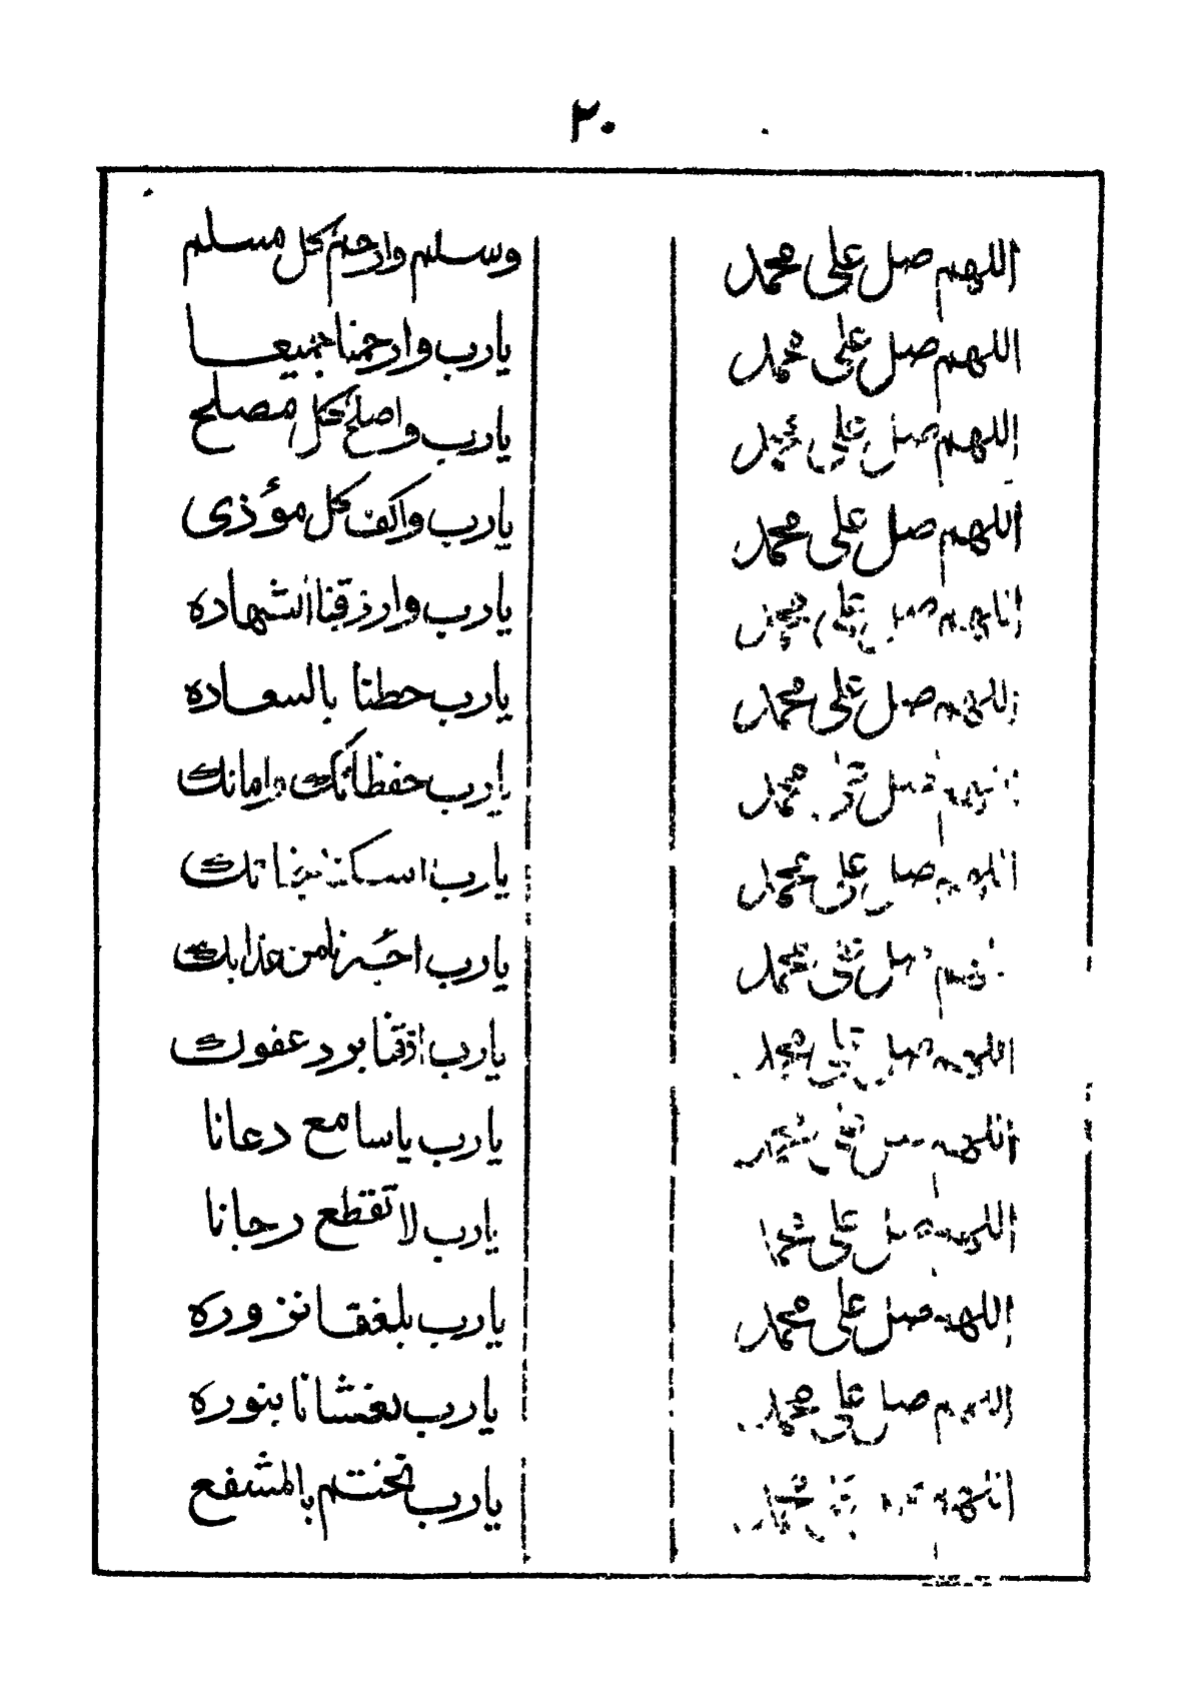 ٢٠
اللهم صل على محمد وسلم وارحم كل مسلم
اللهم صل على محمد يارب وارحمنا جميعا
اللهم صل على محمد يارب واصلح كل مصلح
اللهم صل على محمد يارب واكف كل مؤذى
اللهم صل على محمد يارب وارزقنا الشهاده
اللهم صل على محمد يارب حطنا بالسعاده
اللهم صل على محمد يارب حفظانك وامانك
اللهم صل على محمد يارب اسكنا جنانك
اللهم صل على محمد يارب اجرنا من عذابك
اللهم صل على محمد يارب اذقنا برد عفوك
اللهم صل على محمد يارب ياسامع دعانا
اللهم صل على محمد يارب لاتقطع رجانا
اللهم صل على محمد يارب بلغنا نزوره
اللهم صل على محمد يارب تغشانا بنوره
اللهم صل على محمد يارب نختم بالمشفع